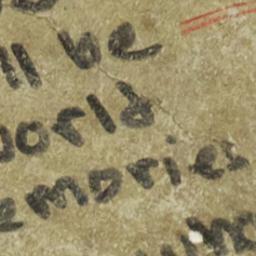 ll be
orld
emories